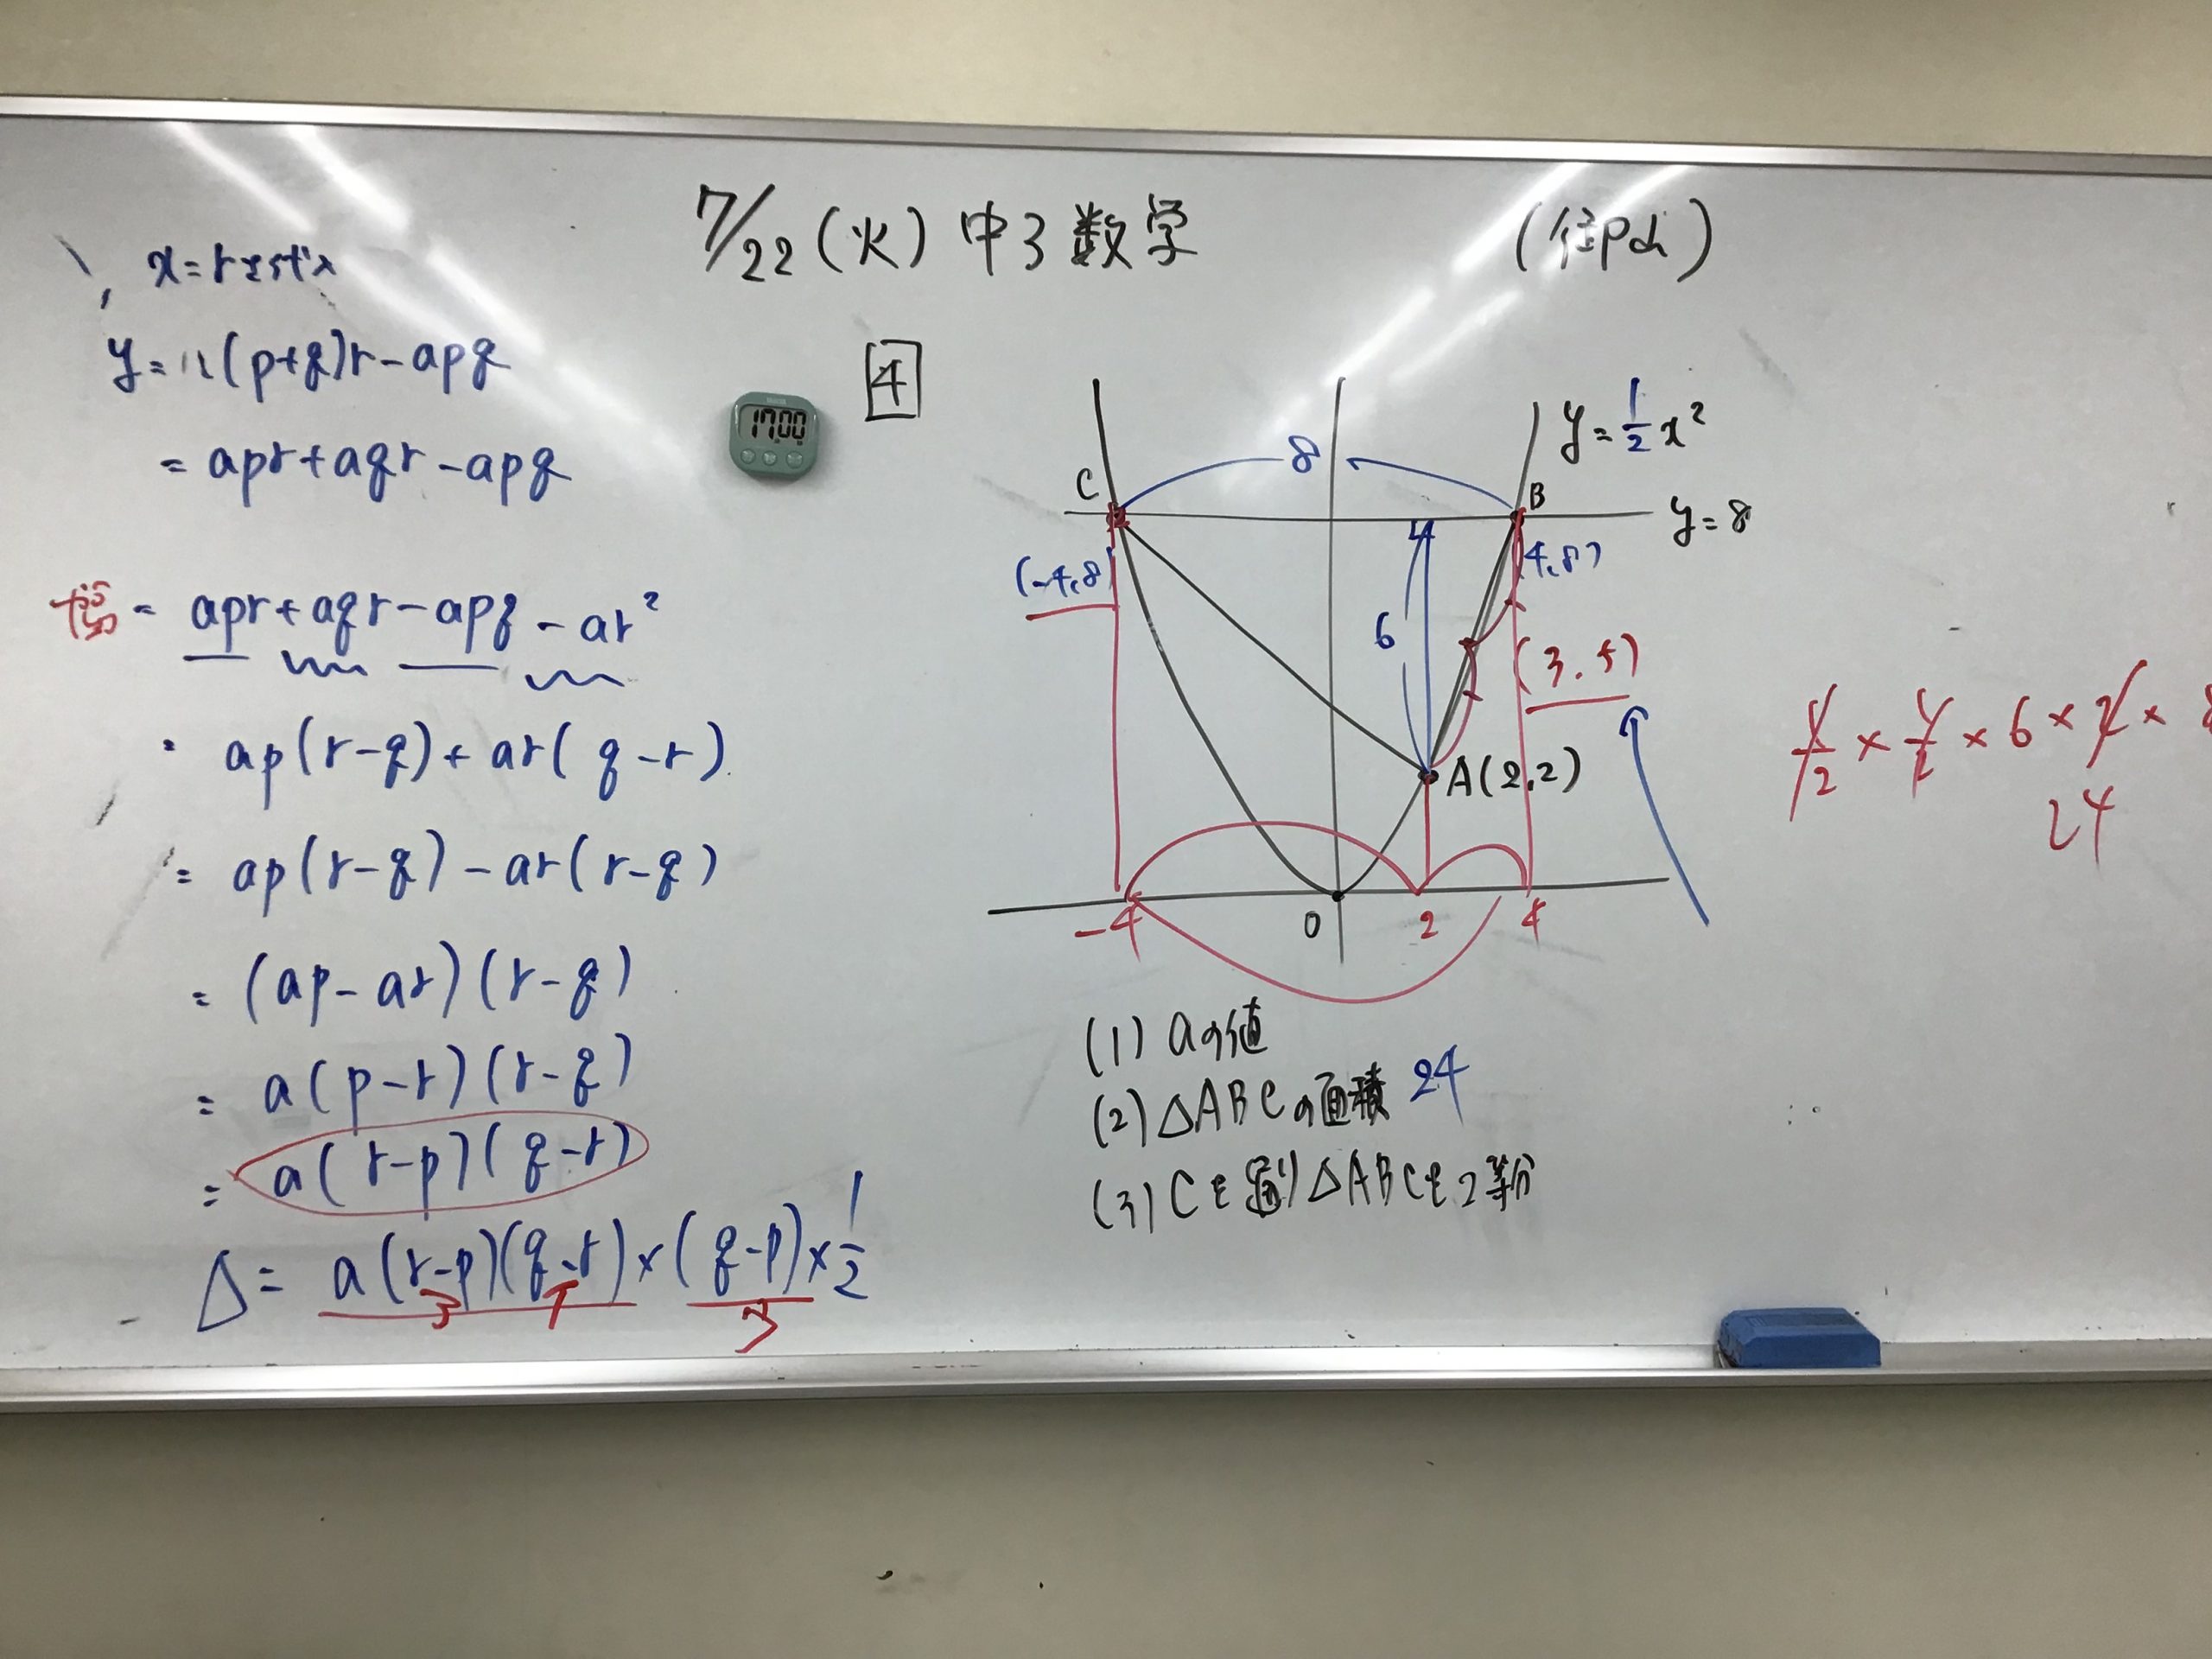 7/22(火)中3数学
x=rを代入
y=a(p+q)r-apq
=apr+aqr-apq
=apr+aqr-apq-ar²
ap(r-q)+ar(q-r)
=ap(r-q)-ar(r-q)
=(ap-ar)(r-q)
=a(p-r)(r-q)
=a(r-p)(q-r)
△=a(r-p)(q-r)×(q-p)×1/2
3 1 3
17:00
4
y=1/2x²
8
C
B
y=8
(-4,8)
(4,8)
6
(3,5)
A(2,2)
-4
0
2
4
1/2×1/2×6×2×8
24
(1)aの値
(2)△ABCの面積 24
(3)Cを通り△ABCを2等分